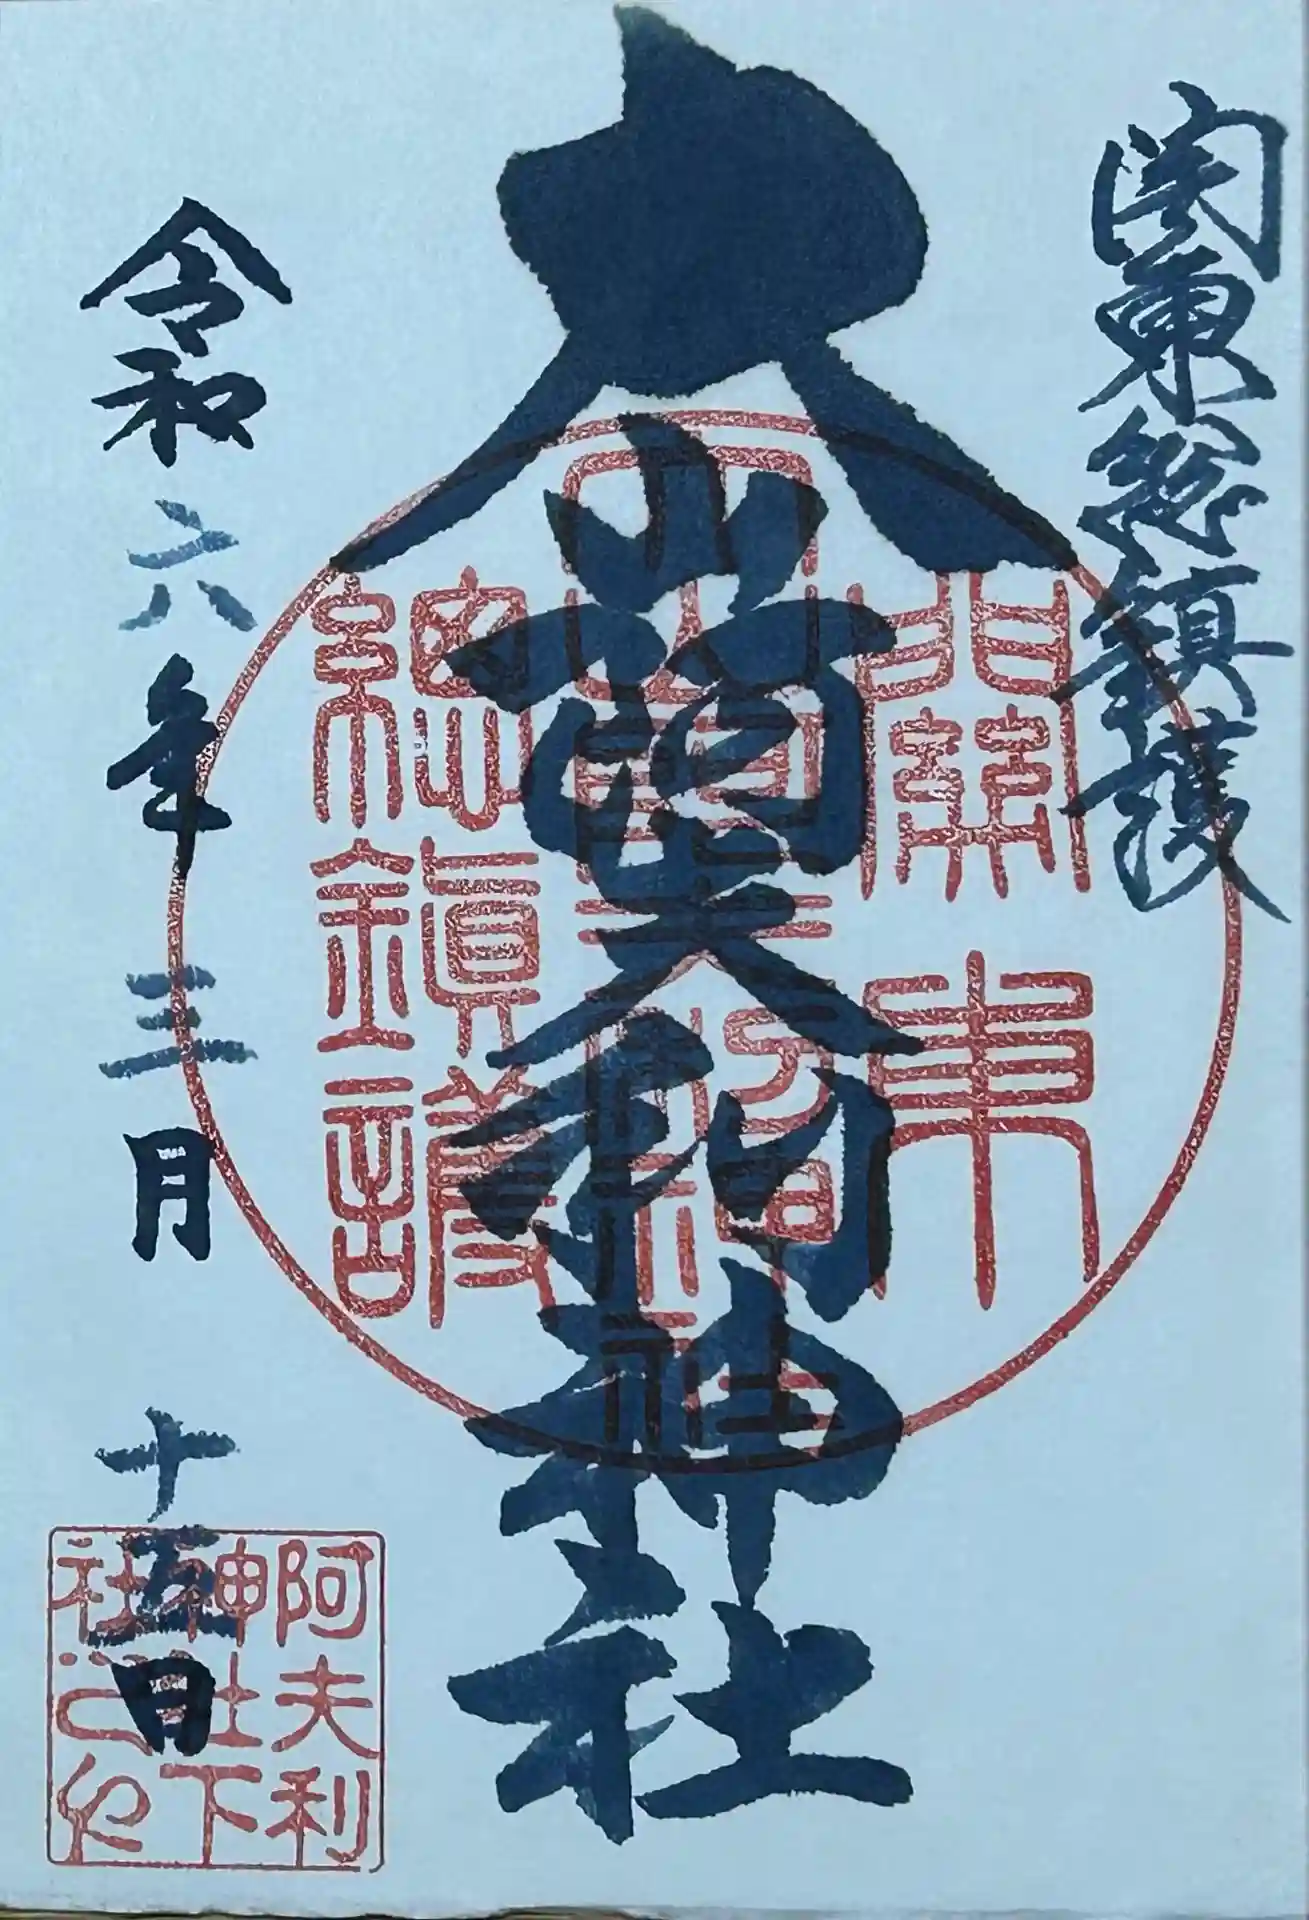 関東総鎮護
大山阿夫利神社
關東
大山阿夫利神社
總鎮護
令和六年三月十五日
阿夫利
神社下
社之印